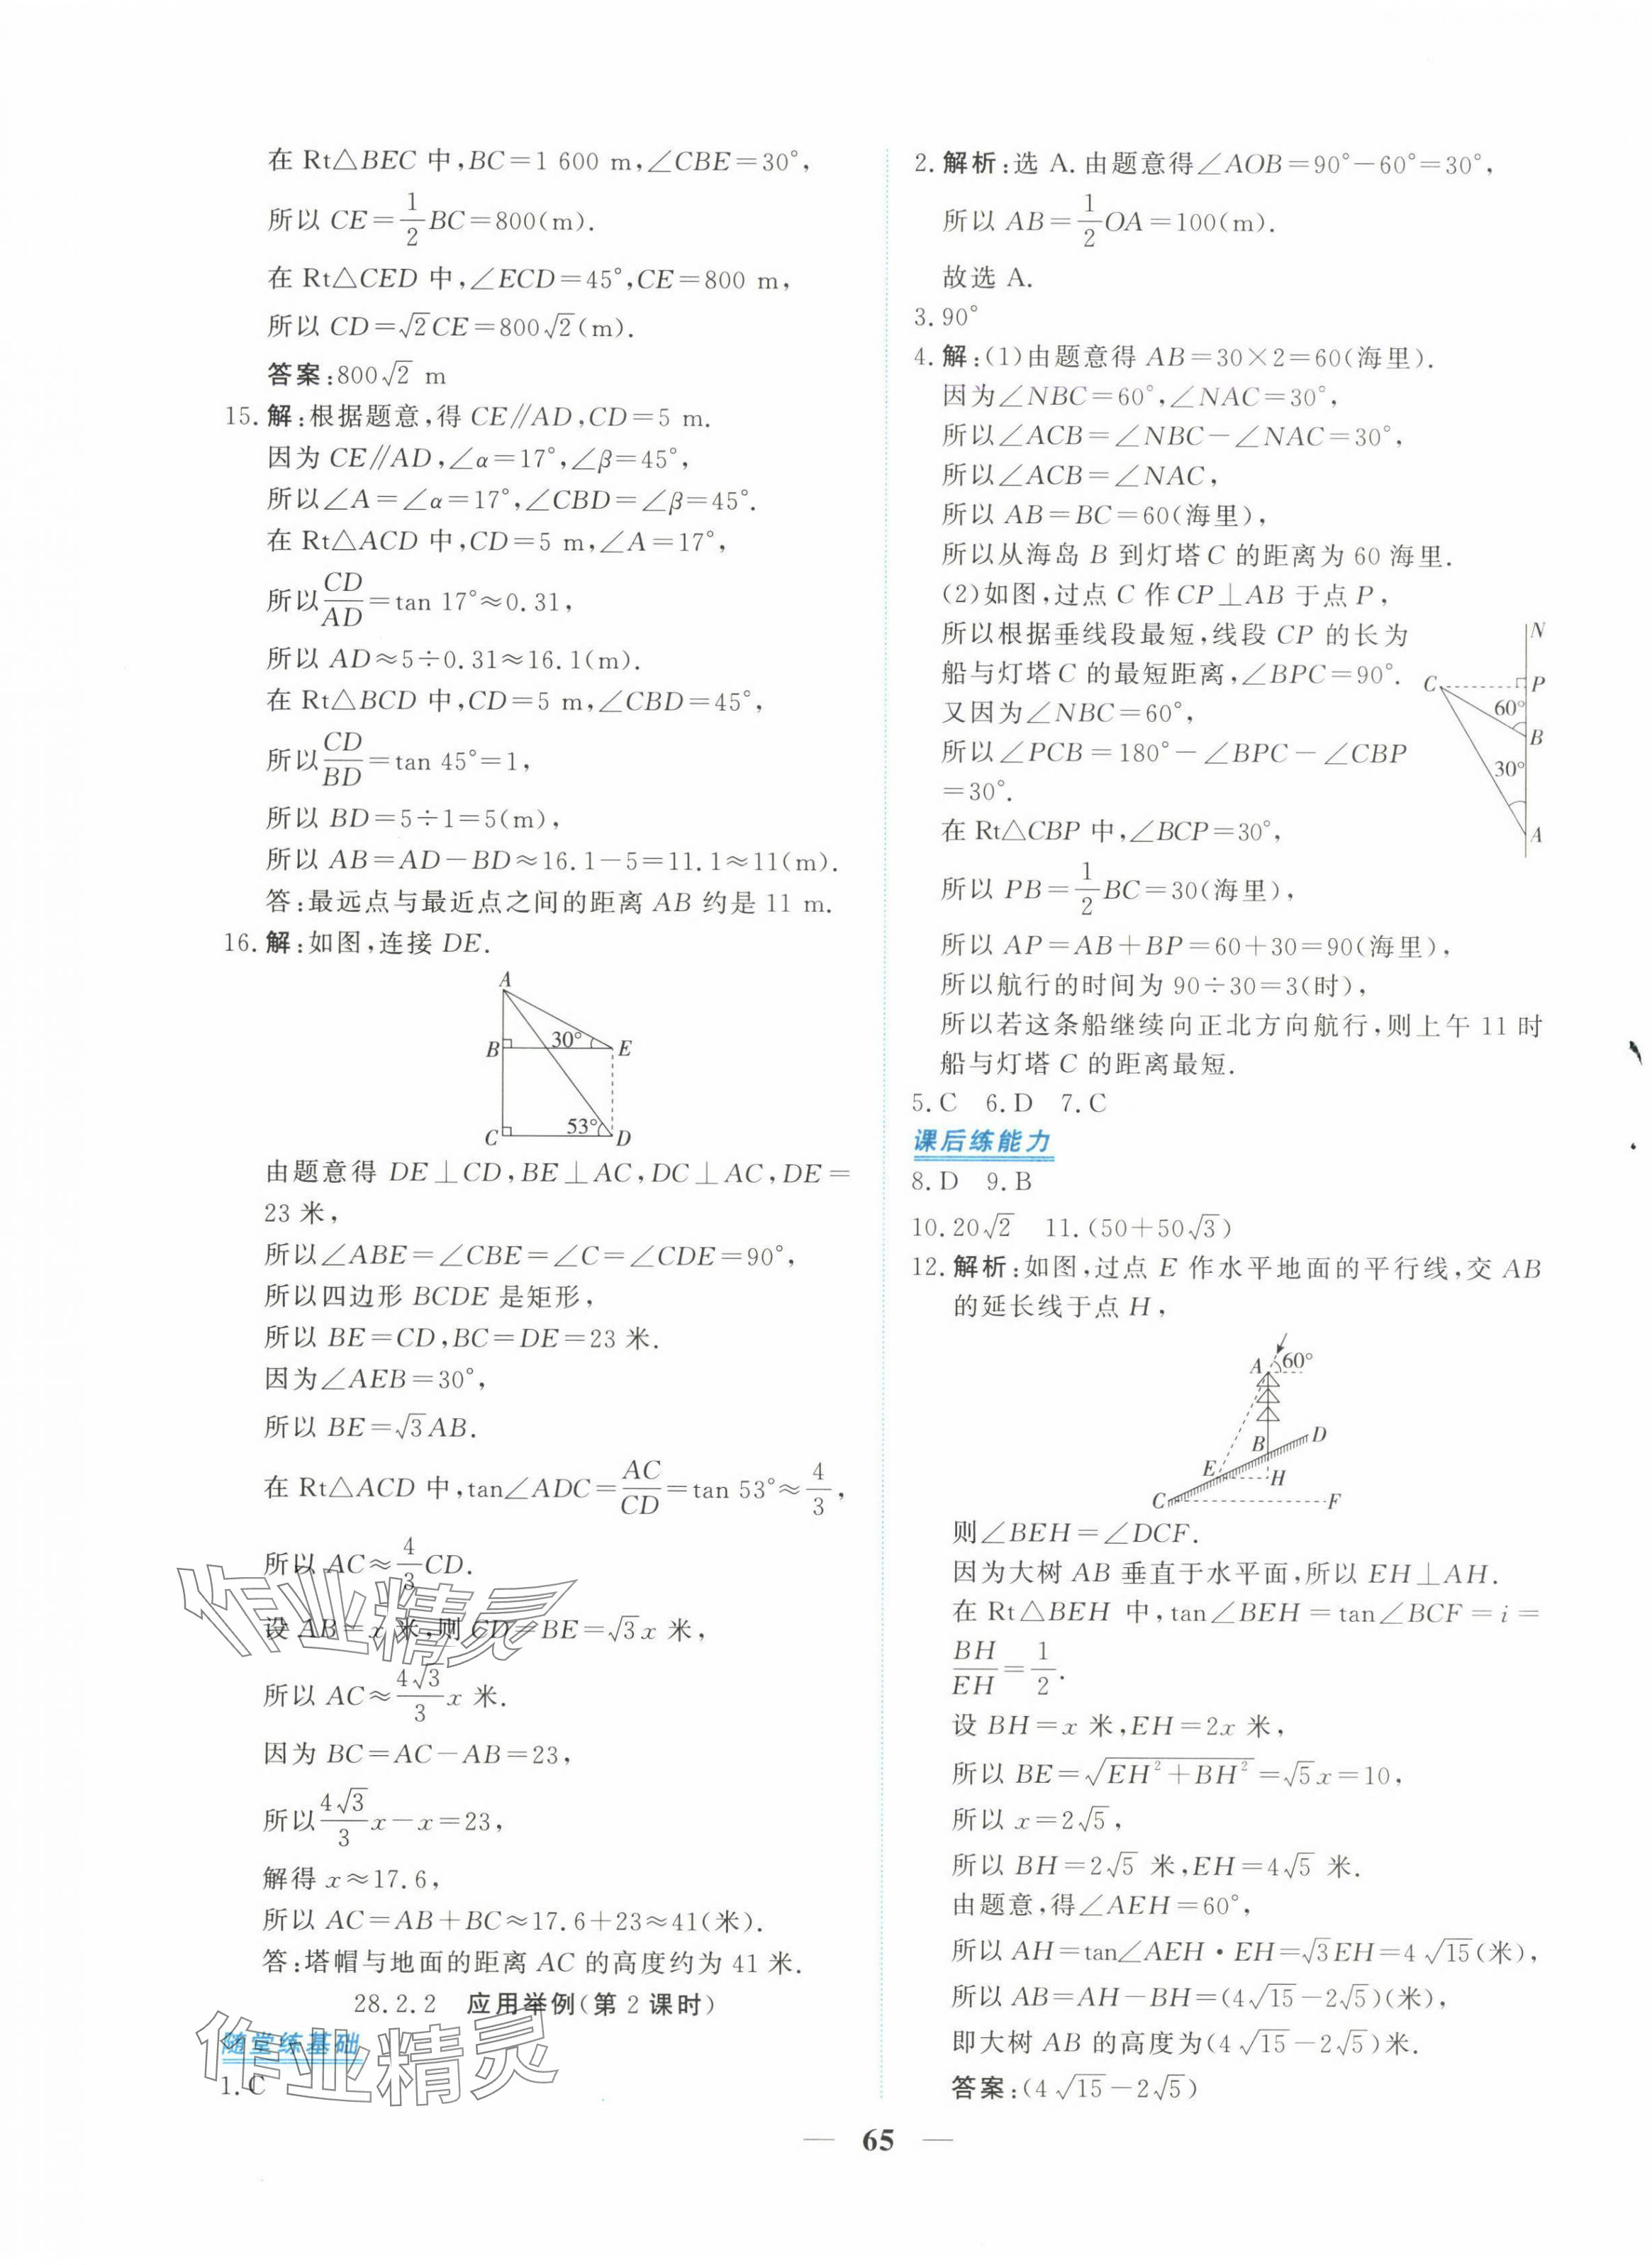 在 Rt△BEC 中,BC=1 600 m,∠CBE=30°,
所以 CE=\frac{1}{2}BC=800(m).
在 Rt△CED 中,∠ECD=45°,CE=800 m,
所以 CD=√2CE=800√2(m).
答案:800√2 m
15. 解:根据题意,得 CE∥AD,CD=5 m.
因为 CE∥AD,∠α=17°,∠β=45°,
所以∠A=∠α=17°,∠CBD=∠β=45°.
在 Rt△ACD 中,CD=5 m,∠A=17°,
所以\frac{CD}{AD}=tan 17°≈0.31,
所以 AD≈5÷0.31≈16.1(m).
在 Rt△BCD 中,CD=5 m,∠CBD=45°,
所以\frac{CD}{BD}=tan 45°=1,
所以 BD=5÷1=5(m),
所以 AB=AD−BD≈16.1−5=11.1≈11(m).
答:最远点与最近点之间的距离 AB 约是 11 m.
16. 解:如图,连接 DE.
A
B 30° E
C 53° D
由题意得 DE⊥CD,BE⊥AC,DC⊥AC,DE=
23 米,
所以∠ABE=∠CBE=∠C=∠CDE=90°,
所以四边形 BCDE 是矩形,
所以 BE=CD,BC=DE=23 米.
因为∠AEB=30°,
所以 BE=√3AB.
在 Rt△ACD 中,tan∠ADC=\frac{AC}{CD}=tan 53°≈\frac{4}{3},
所以 AC≈\frac{4}{3}CD.
设 AB=x 米,则 CD=BE=√3x 米,
所以 AC≈\frac{4√3}{3}x 米.
因为 BC=AC−AB=23,
所以\frac{4√3}{3}x−x=23,
解得 x≈17.6,
所以 AC=AB+BC≈17.6+23≈41(米).
答:塔帽与地面的距离 AC 的高度约为 41 米.
28.2.2 应用举例(第 2 课时)
随堂练基础
1.C
作业精灵
作业精灵
2. 解析:选 A.由题意得∠AOB=90°−60°=30°,
所以 AB=\frac{1}{2}OA=100(m).
故选 A.
3.90°
4. 解:(1)由题意得 AB=30×2=60(海里).
因为∠NBC=60°,∠NAC=30°,
所以∠ACB=∠NBC−∠NAC=30°,
所以∠ACB=∠NAC,
所以 AB=BC=60(海里),
所以从海岛 B 到灯塔 C 的距离为 60 海里.
(2)如图,过点 C 作 CP⊥AB 于点 P,
所以根据垂线段最短,线段 CP 的长为
船与灯塔 C 的最短距离,∠BPC=90°.
又因为∠NBC=60°,
所以∠PCB=180°−∠BPC−∠CBP
=30°.
在 Rt△CBP 中,∠BCP=30°,
N
C P
60°
B
30°
A
所以 PB=\frac{1}{2}BC=30(海里),
所以 AP=AB+BP=60+30=90(海里),
所以航行的时间为 90÷30=3(时),
所以若这条船继续向正北方向航行,则上午 11 时
船与灯塔 C 的距离最短.
5.C 6.D 7.C
课后练能力
8.D 9.B
10.20√2 11.(50+50√3)
12. 解析:如图,过点 E 作水平地面的平行线,交 AB
的延长线于点 H,
A 60°
B D
E H
C F
则∠BEH=∠DCF.
因为大树 AB 垂直于水平面,所以 EH⊥AH.
在 Rt△BEH 中,tan∠BEH=tan∠BCF=i=
\frac{BH}{EH}=\frac{1}{2}.
设 BH=x 米,EH=2x 米,
所以 BE=√(EH²+BH²)=√5x=10,
所以 x=2√5,
所以 BH=2√5 米,EH=4√5 米.
由题意,得∠AEH=60°,
所以 AH=tan∠AEH·EH=√3EH=4√15(米),
所以 AB=AH−BH=(4√15−2√5)(米),
即大树 AB 的高度为(4√15−2√5)米.
答案:(4√15−2√5)
65